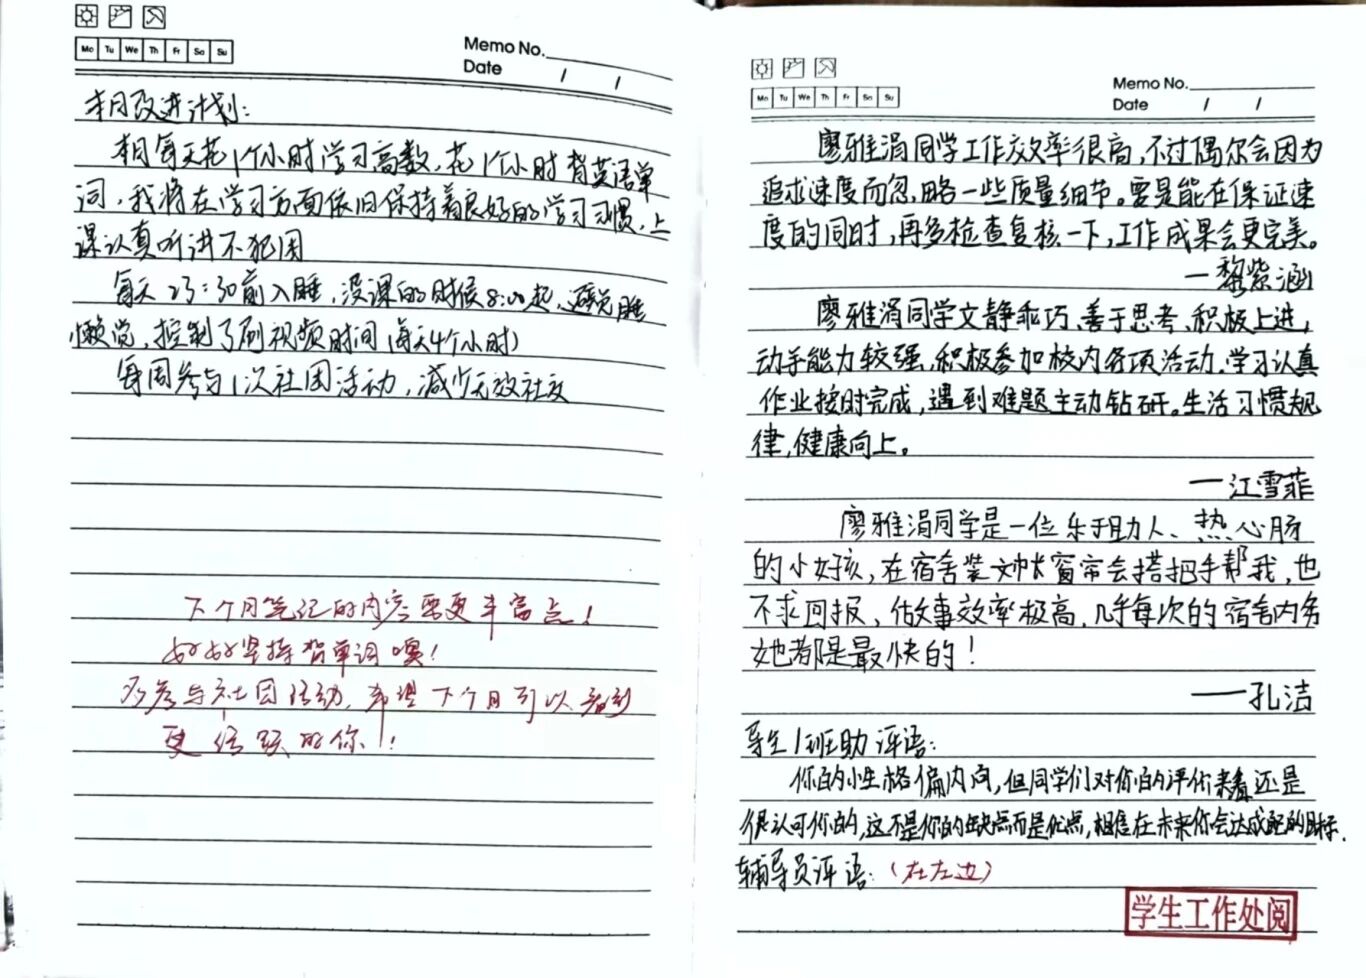 Mo Tu We Th Fr Sa Su
Memo No.
Date / /
本月改进计划:
本月每天花1个小时学习高数,花1个小时背英语单
词,我将在学习方面依旧保持着良好的学习习惯,上
课认真听讲不犯困
每天23:30前入睡,没课的时候8:00起,避免睡
懒觉,控制了刷视频时间(每天4个小时)
每周参与1次社团活动,减少无效社交
下个月笔记的内容要更丰富点!
好好坚持背单词噢!
多参与社团活动,希望下个月可以看到
更活跃的你!
Mo Tu We Th Fr Sa Su
Memo No.
Date / /
廖雅涓同学工作效率很高,不过偶尔会因为
追求速度而忽略一些质量细节。要是能在保证速
度的同时,再多检查复核一下,工作成果会更完美。
—黎紫涵
廖雅涓同学文静乖巧、善于思考、积极上进,
动手能力较强,积极参加校内各项活动.学习认真
作业按时完成,遇到难题主动钻研。生活习惯规
律,健康向上。
—江雪菲
廖雅涓同学是一位乐于助人、热心肠
的小女孩,在宿舍装蚊帐窗帘会搭把手帮我,也
不求回报,做事效率极高,几乎每次的宿舍内务
她都是最快的!
—孔洁
导生/班助评语:
你的小性格偏内向,但同学们对你的评价来看还是
很认可你的,这不是你的缺点而是优点,相信在未来你会达成的目标.
辅导员评语:(在左边)
学生工作处阅